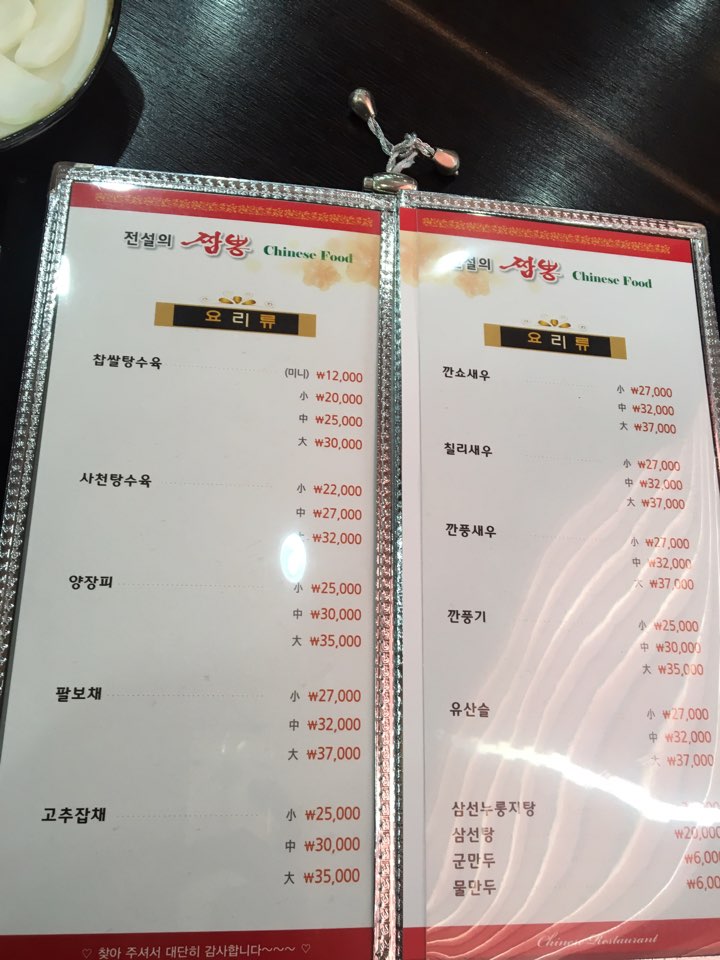 전설의 짬뽕 Chinese Food
요리류
찹쌀탕수육 (미니) ₩12,000
小 ₩20,000
中 ₩25,000
大 ₩30,000
사천탕수육 小 ₩22,000
中 ₩27,000
₩32,000
양장피 小 ₩25,000
中 ₩30,000
大 ₩35,000
팔보채 小 ₩27,000
中 ₩32,000
大 ₩37,000
고추잡채 小 ₩25,000
中 ₩30,000
大 ₩35,000
♡ 찾아 주셔서 대단히 감사합니다~~~ ♡
전설의 짬뽕 Chinese Food
요리류
깐쇼새우 小 ₩27,000
中 ₩32,000
大 ₩37,000
칠리새우 小 ₩27,000
中 ₩32,000
大 ₩37,000
깐풍새우 小 ₩27,000
中 ₩32,000
大 ₩37,000
깐풍기 小 ₩25,000
中 ₩30,000
大 ₩35,000
유산슬 小 ₩27,000
中 ₩32,000
大 ₩37,000
삼선누룽지탕
삼선탕 ₩20,000
군만두 ₩6,00
물만두 ₩6,00
Chinese Restaurant